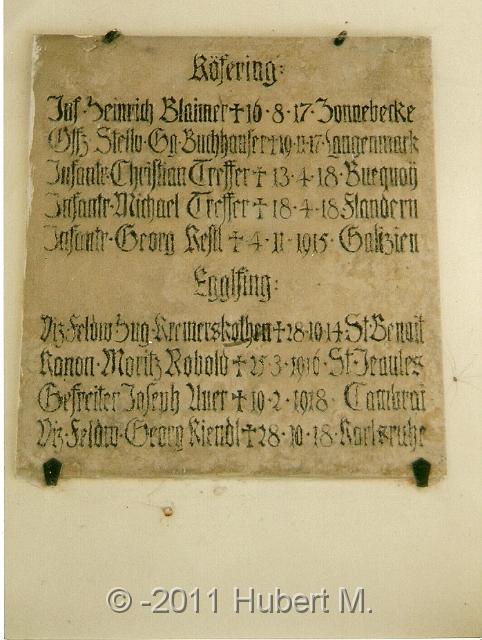 Köfering:
Inf. Heinrich Blaimer † 16 · 8 · 17 · Zonnebecke
Offz. Stellv. Gg. Buchhauser † 19 · 11 · 17 Langemarck
Infantr. Christian Treffer † 13 · 4 · 18 · Bucquoij
Infantr. Michael Treffer † 18 · 4 · 18 Flandern
Infantr. Georg Kestl † 4 · 11 · 1915 · Galizien
Egglfing:
Viz. Feldw. Hug. Kremerskothen † 28 · 10 · 14 St. Benoit
Kanon. Moritz Robold † 25 · 3 · 1916 · St.
Gefreiter Joseph Auer † 10 · 2 · 1918 · Cambrai
Viz. Feldw. Georg Kiendl † 28 · 10 · 18 · Karlsruhe
© -2011 Hubert M.